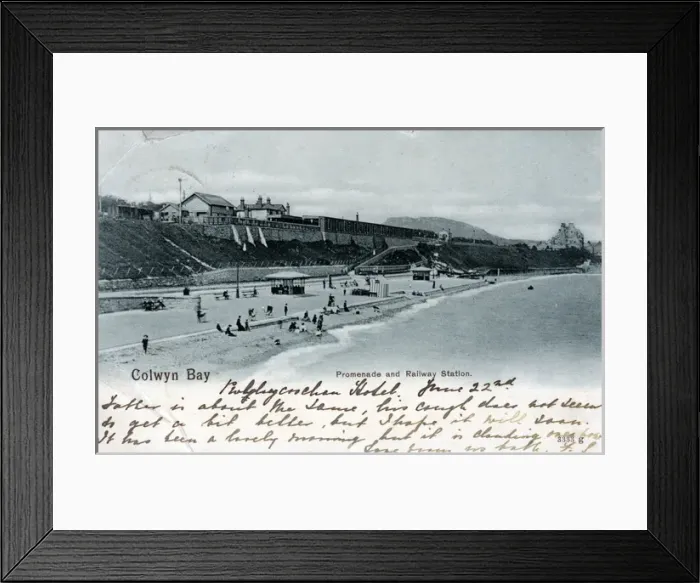 Colwyn Bay
Promenade and Railway Station.
Hotel. June 22nd
Father is about the same, his cough does not seem
to get a bit better, but I hope it will soon.
It has been a lovely morning but it is clouding
3333 g